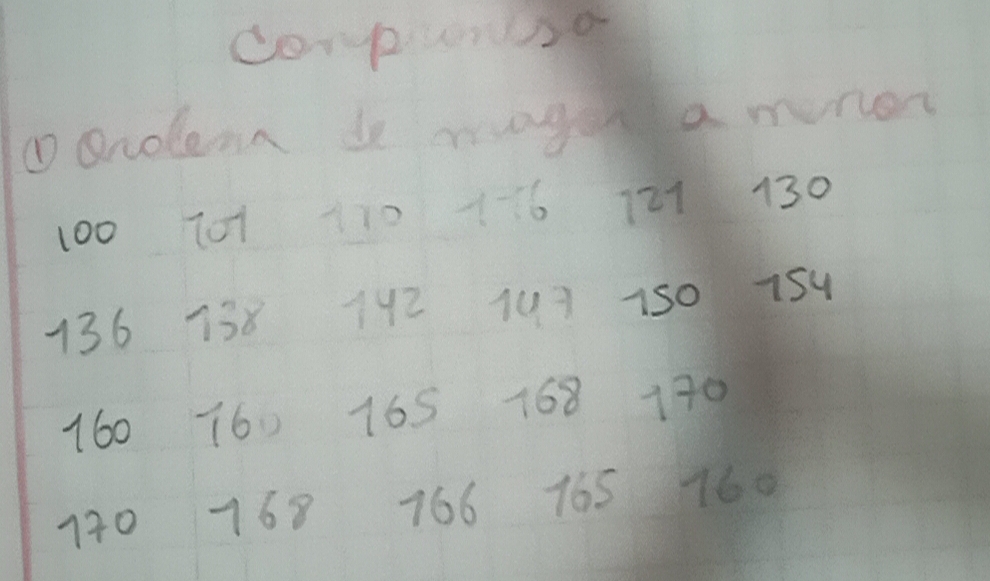 ① Ordena de mayor a menor
100 101 110 116 121 130
136 138 142 147 150 154
160 160 165 168 170
170 168 166 165 160